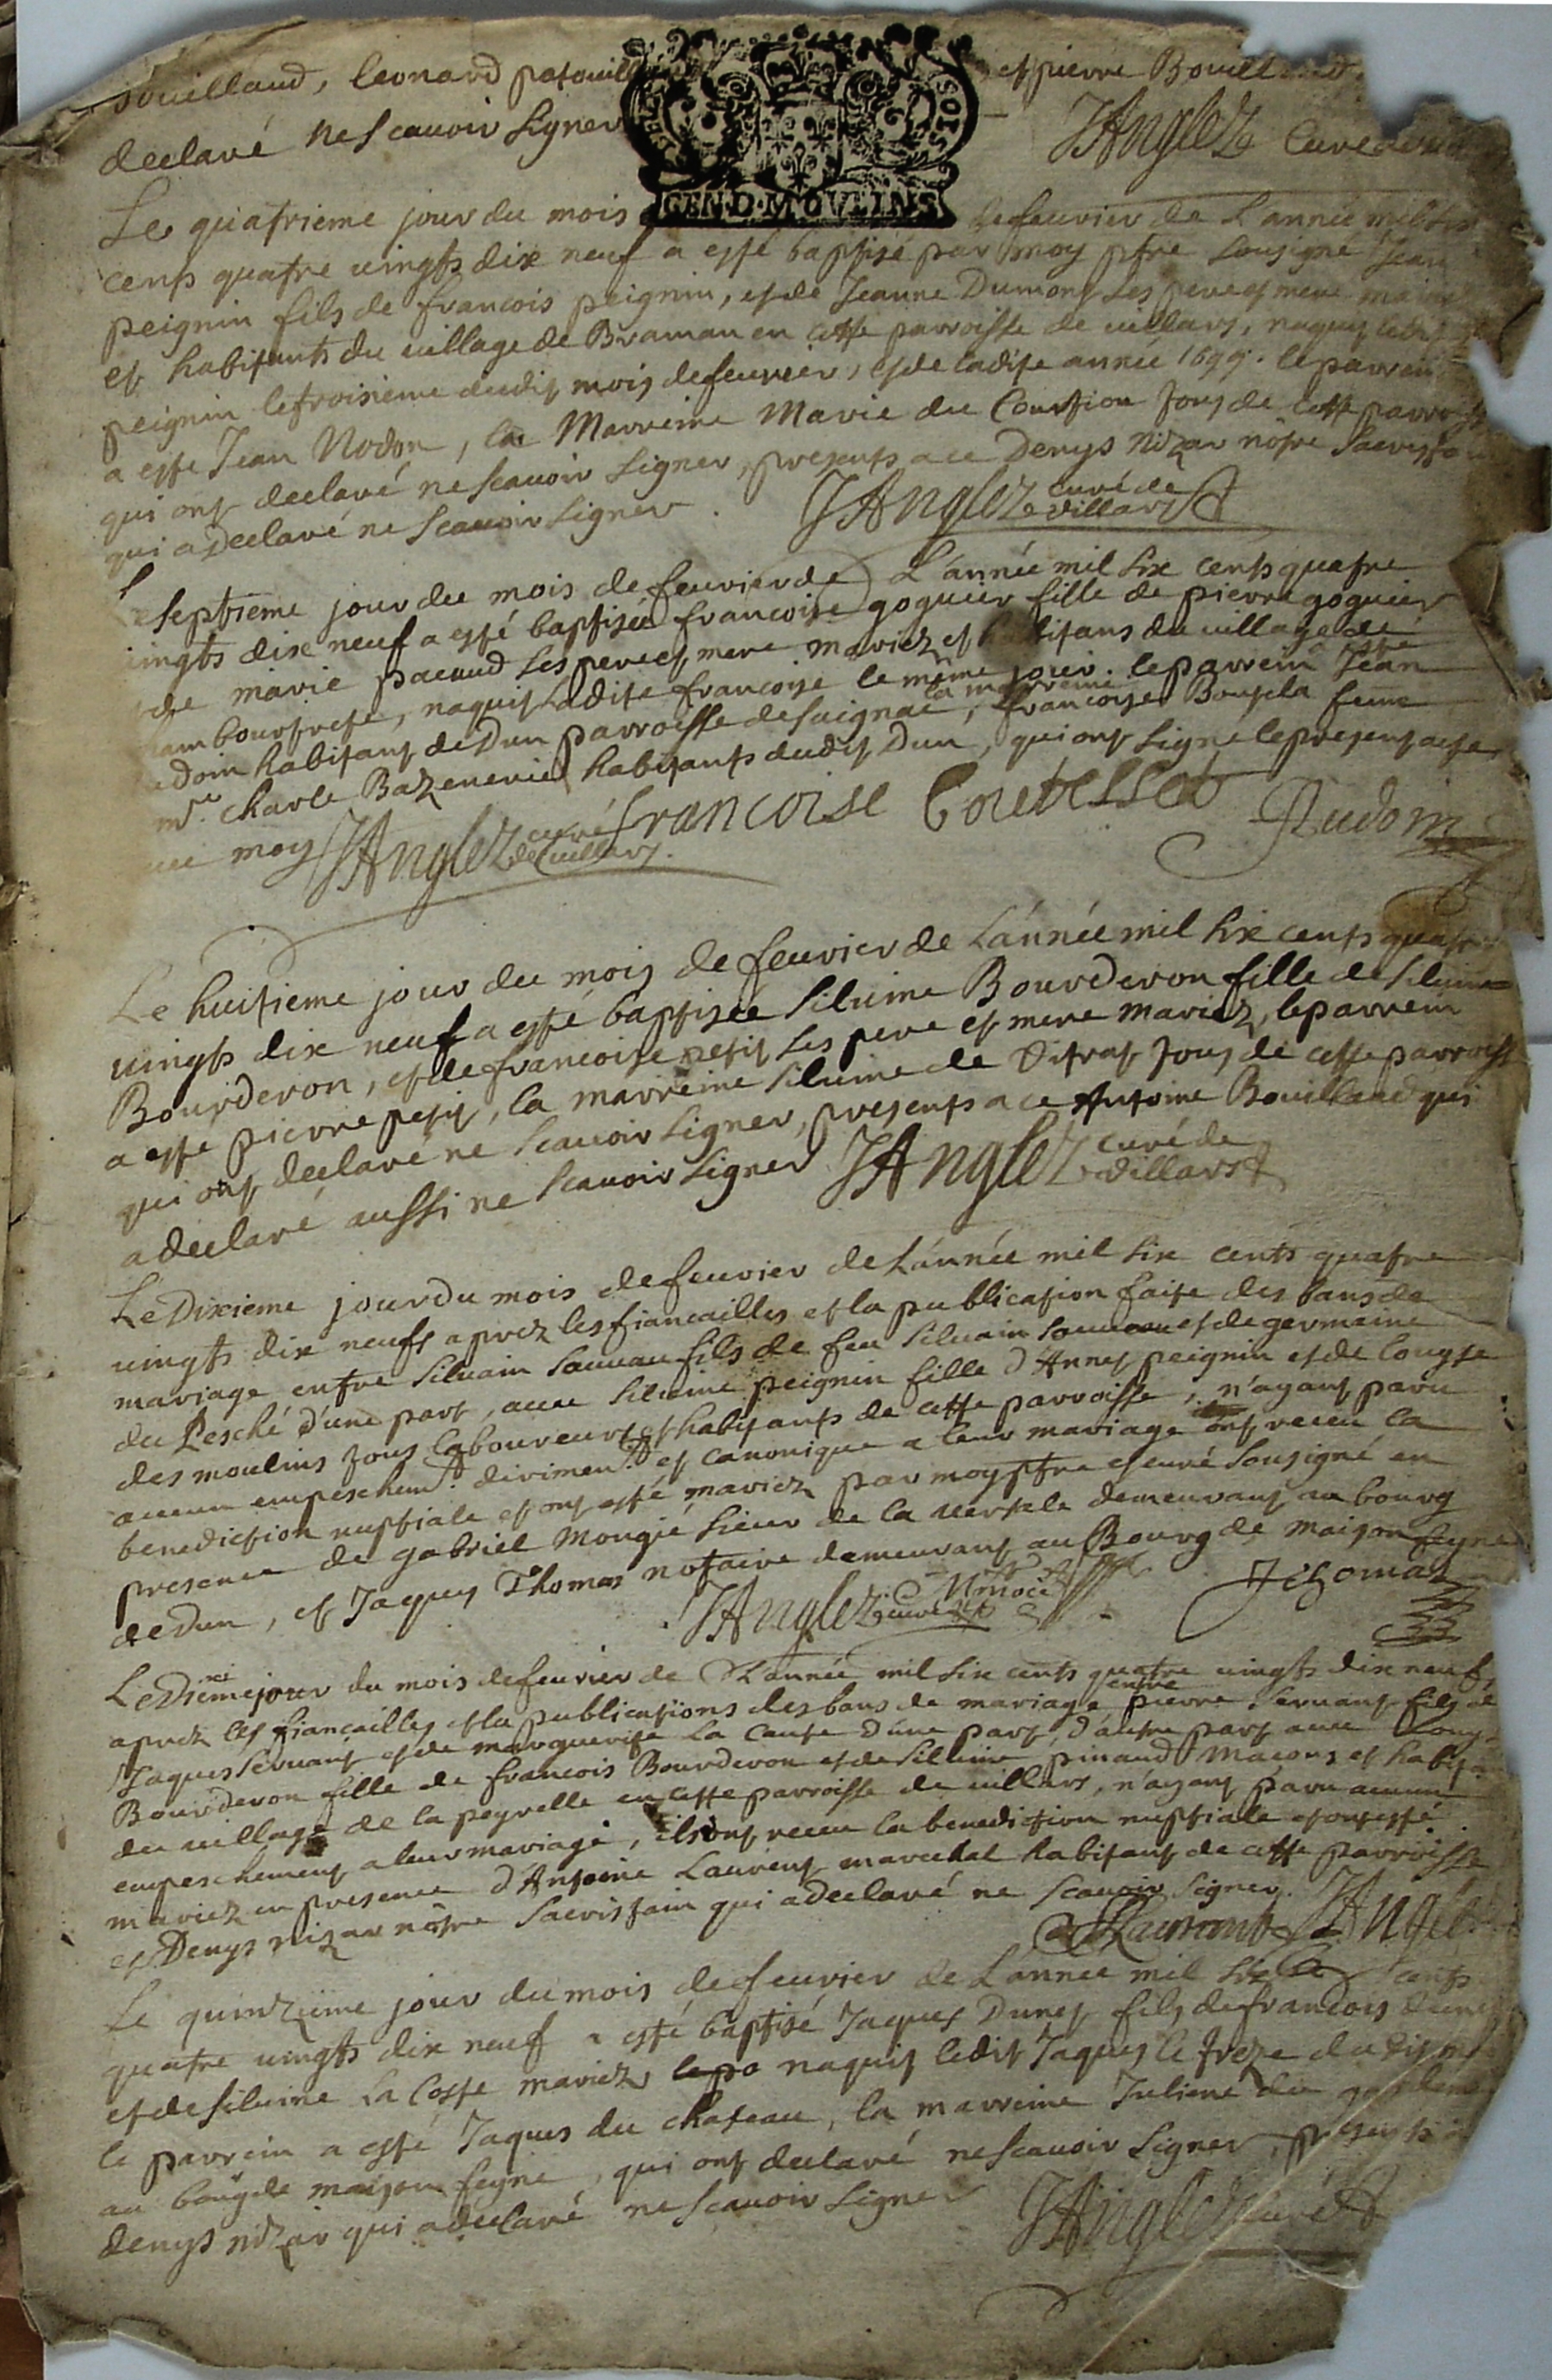 souillaud, leonard patouill et pierre Bouill
declaré ne scauoir signer JAnglez Curé de
GEND·MOVLINS
Le quatrieme jour du mois de feurier de L'année mil six
cents quatre uingts dix neuf a esté baptisé par moy ptre sousigné Jean
peignin fils de francois peignin, et de Jeanne Dumont ses pere et mere mariez
et habitants du uillage de Braman en cette parroisse de uillars, naquit ledit
peignin le troisieme dudit mois de feurier, et de ladite année 1699. le parrein
a esté Jean Nodon, la Marreine Marie du Courtion tous de cette parroisse
qui ont declaré ne scauoir signer, presents a ce Denys nizar nôtre sacristain
qui a declaré ne scauoir signer. JAnglez curé de villars
Le septieme jour du mois de feurier de L'année mil six cents quatre
uingts dix neuf a esté baptisée francoise goguier fille de pierre goguier
et de marie pacaud ses pere et mere mariez et habitans du uillage de
bourtrete, naquit Ladite francoise le même jour. le parrein a esté Jean
doin habitant de Dun parroisse de saignac, la marreine francoise Boust la feme
mre. charle Bazenerie habitants dudit Dun, qui ont signé le present acte
auec moy JAnglez curé de uillars. francoise Audoin
Le huitieme jour du mois de feurier de L'année mil six cents quatre
uingts dix neuf a esté baptisée siluine Bourderon fille de siluain
Bourderon, et de francoise petit ses pere et mere mariez, le parrein
a esté pierre petit, la marreine siluine de Vitrat tous de cette parroisse
qui ont declaré ne scauoir signer, presents a ce Antoine Bouillaud qui
a declaré aussi ne scauoir signer JAnglez curé de villars
Le Dixieme jour du mois de feurier de L'année mil six cents quatre
uingts dix neufs aprez les fiancailles et la publication faite des bans de
mariage entre siluain sauuau fils de feu siluain sauuau et de germaine
du Pesché d'une part, auec siluine peignin fille d'Annet peignin et de Louyse
des moulins tous laboureurs et habitants de cette parroisse, n'ayant paru
aucun empeschemt. diriment et canonique a leur mariage ont receu la
benediction nuptiale et ont esté mariez par moy ptre et curé sousigné en
presence de gabriel mongié sieur de la uertele demeurant au bourg
de Dun, et Jaques Thomas notaire demeurant au Bourg de maison feyne
JAnglez curé JThomas
Le Dixiemé jour du mois de feurier de L'année mil six cents quatre uingts dix neuf,
aprez les fiancailles et la publications des bans de mariage entre pierre seruant fils de
Jaques seruant et de marguerite La Caute d'une part, d'autre part auec Louyse
Bourderon fille de francois Bourderon et de siluine pinaud Macons et habitans
du uillage de la peyrelle en cette parroisse de uillars, n'ayant paru aucun
empeschement a leur mariage, ils ont receu la benediction nuptiale et ont esté
mariez en presence d'Antoine Laurent marechal habitant de cette parroisse
et Denys nizar nôtre sacristain qui a declaré ne scauoir signer. ALaurent JAnglez
Le quinzieme jour du mois de feurier de L'année mil six cents
quatre uingts dix neuf a esté baptisé Jaques Dunet fils de francois dunet
et de siluine La Coste mariez, le pa naquit ledit Jaques le treze du dit mois
le parrein a esté Jaques du chateau, la marreine Juliene du
au boug de maison feyne, qui ont declaré ne scauoir signer, presents a
denys nizar qui a declaré ne scauoir signer JAnglez curé